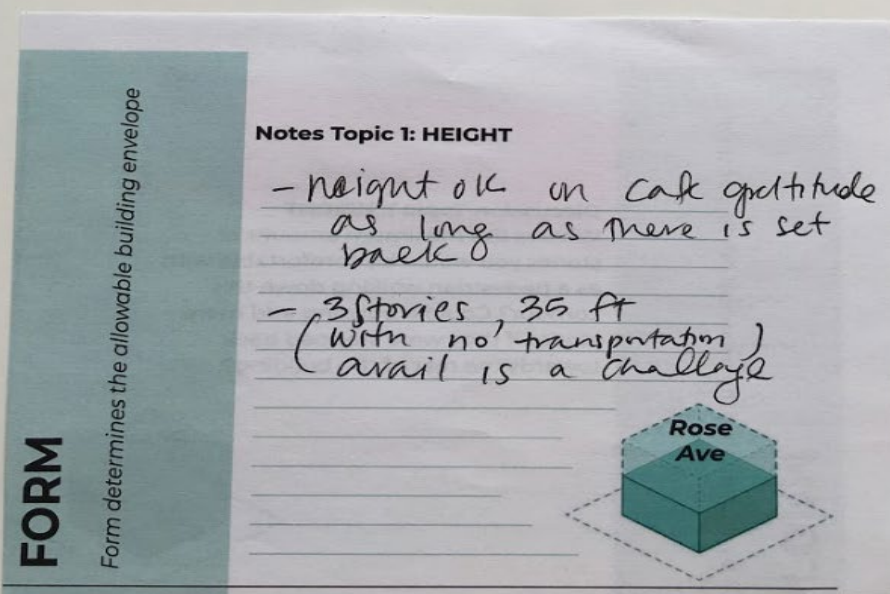 FORM
Form determines the allowable building envelope
Notes Topic 1: HEIGHT
- height ok on cafe gratitude
as long as there is set
back
- 3 stories, 35 ft
(with no transportation)
avail is a challage
Rose
Ave